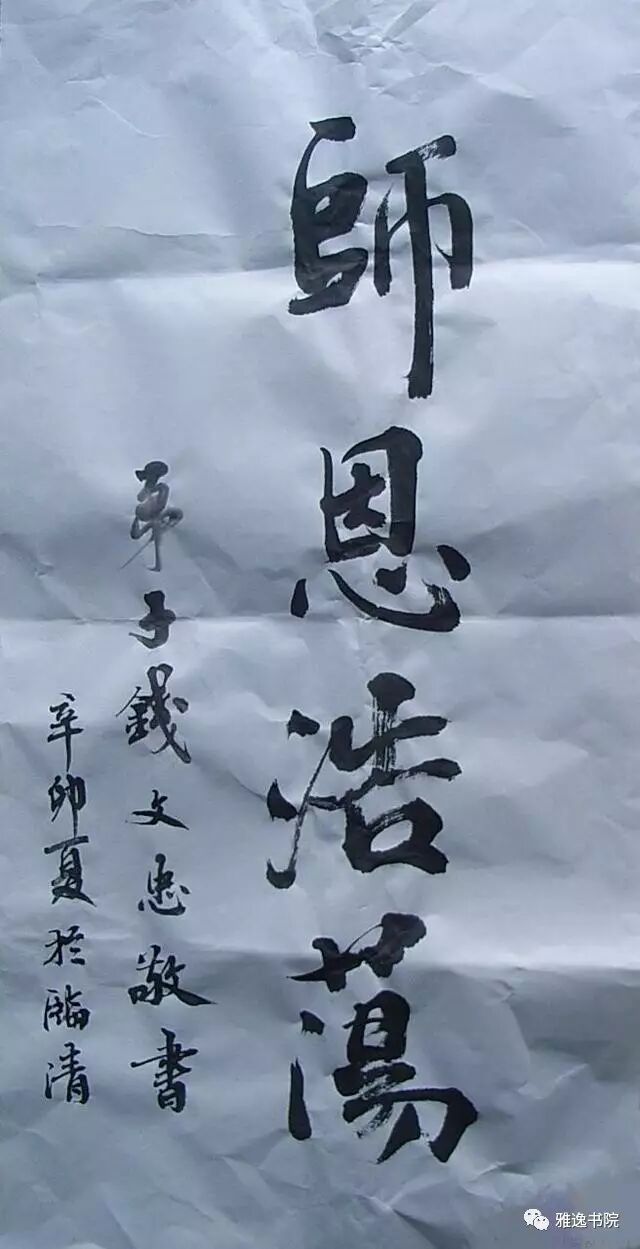 師恩浩蕩
弟子錢文忠敬書
辛卯夏於臨清
雅逸书院